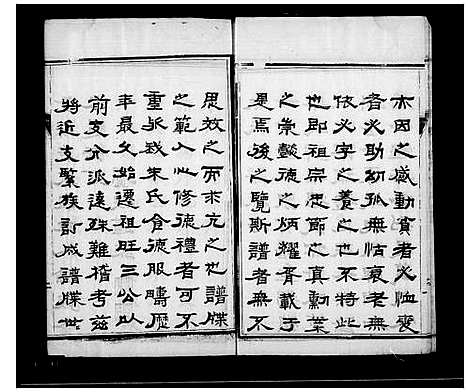 木因之感動貧者必恤寡
者必助幼孤無怙衰老無
依必字之養之也不特此
也即祖宗忠節之真勳業
之崇懿德之炳耀胥載于
是焉後之覽斯譜者無不
思效之而求亢之也譜牒
之範人心修德禮者可不
重哉我朱氏食德服疇歷
年最久始遷祖旺三公以
前支分派遠殊難稽考茲
將近支繫族訂成譜牒世